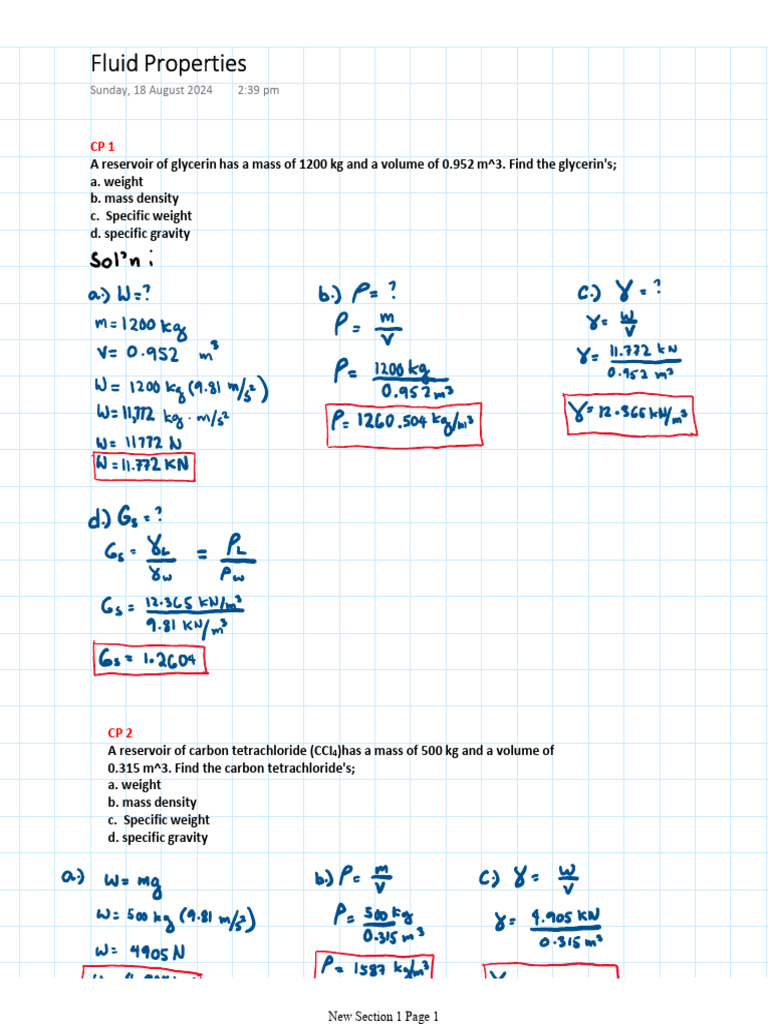 Fluid Properties
Sunday, 18 August 2024 2:39 pm
CP 1
A reservoir of glycerin has a mass of 1200 kg and a volume of 0.952 m^3. Find the glycerin's;
a. weight
b. mass density
c. Specific weight
d. specific gravity
Sol'n :
a.) W=?
m=1200 kg
V= 0.952 m³
W= 1200 kg (9.81 m/s²)
W= 11,772 kg·m/s²
W= 11772 N
W=11.772 KN
b.) ρ= ?
ρ= m/V
ρ= 1200 kg/0.952 m³
ρ= 1260.504 kg/m³
c.) γ = ?
γ= W/V
γ= 11.772 kN/0.952 m³
γ= 12.366 kN/m³
d.) Gs = ?
Gs = γL/γw = ρL/ρw
Gs = 12.365 kN/m³/9.81 KN/m³
Gs = 1.2604
CP 2
A reservoir of carbon tetrachloride (CCl₄)has a mass of 500 kg and a volume of
0.315 m^3. Find the carbon tetrachloride's;
a. weight
b. mass density
c. Specific weight
d. specific gravity
a.) W= mg
W= 500 kg (9.81 m/s²)
W= 4905 N
b.) ρ= m/V
ρ= 500 kg/0.315 m³
ρ= 1587 kg/m³
c.) γ = W/V
γ= 4.905 KN/0.315 m³
New Section 1 Page 1